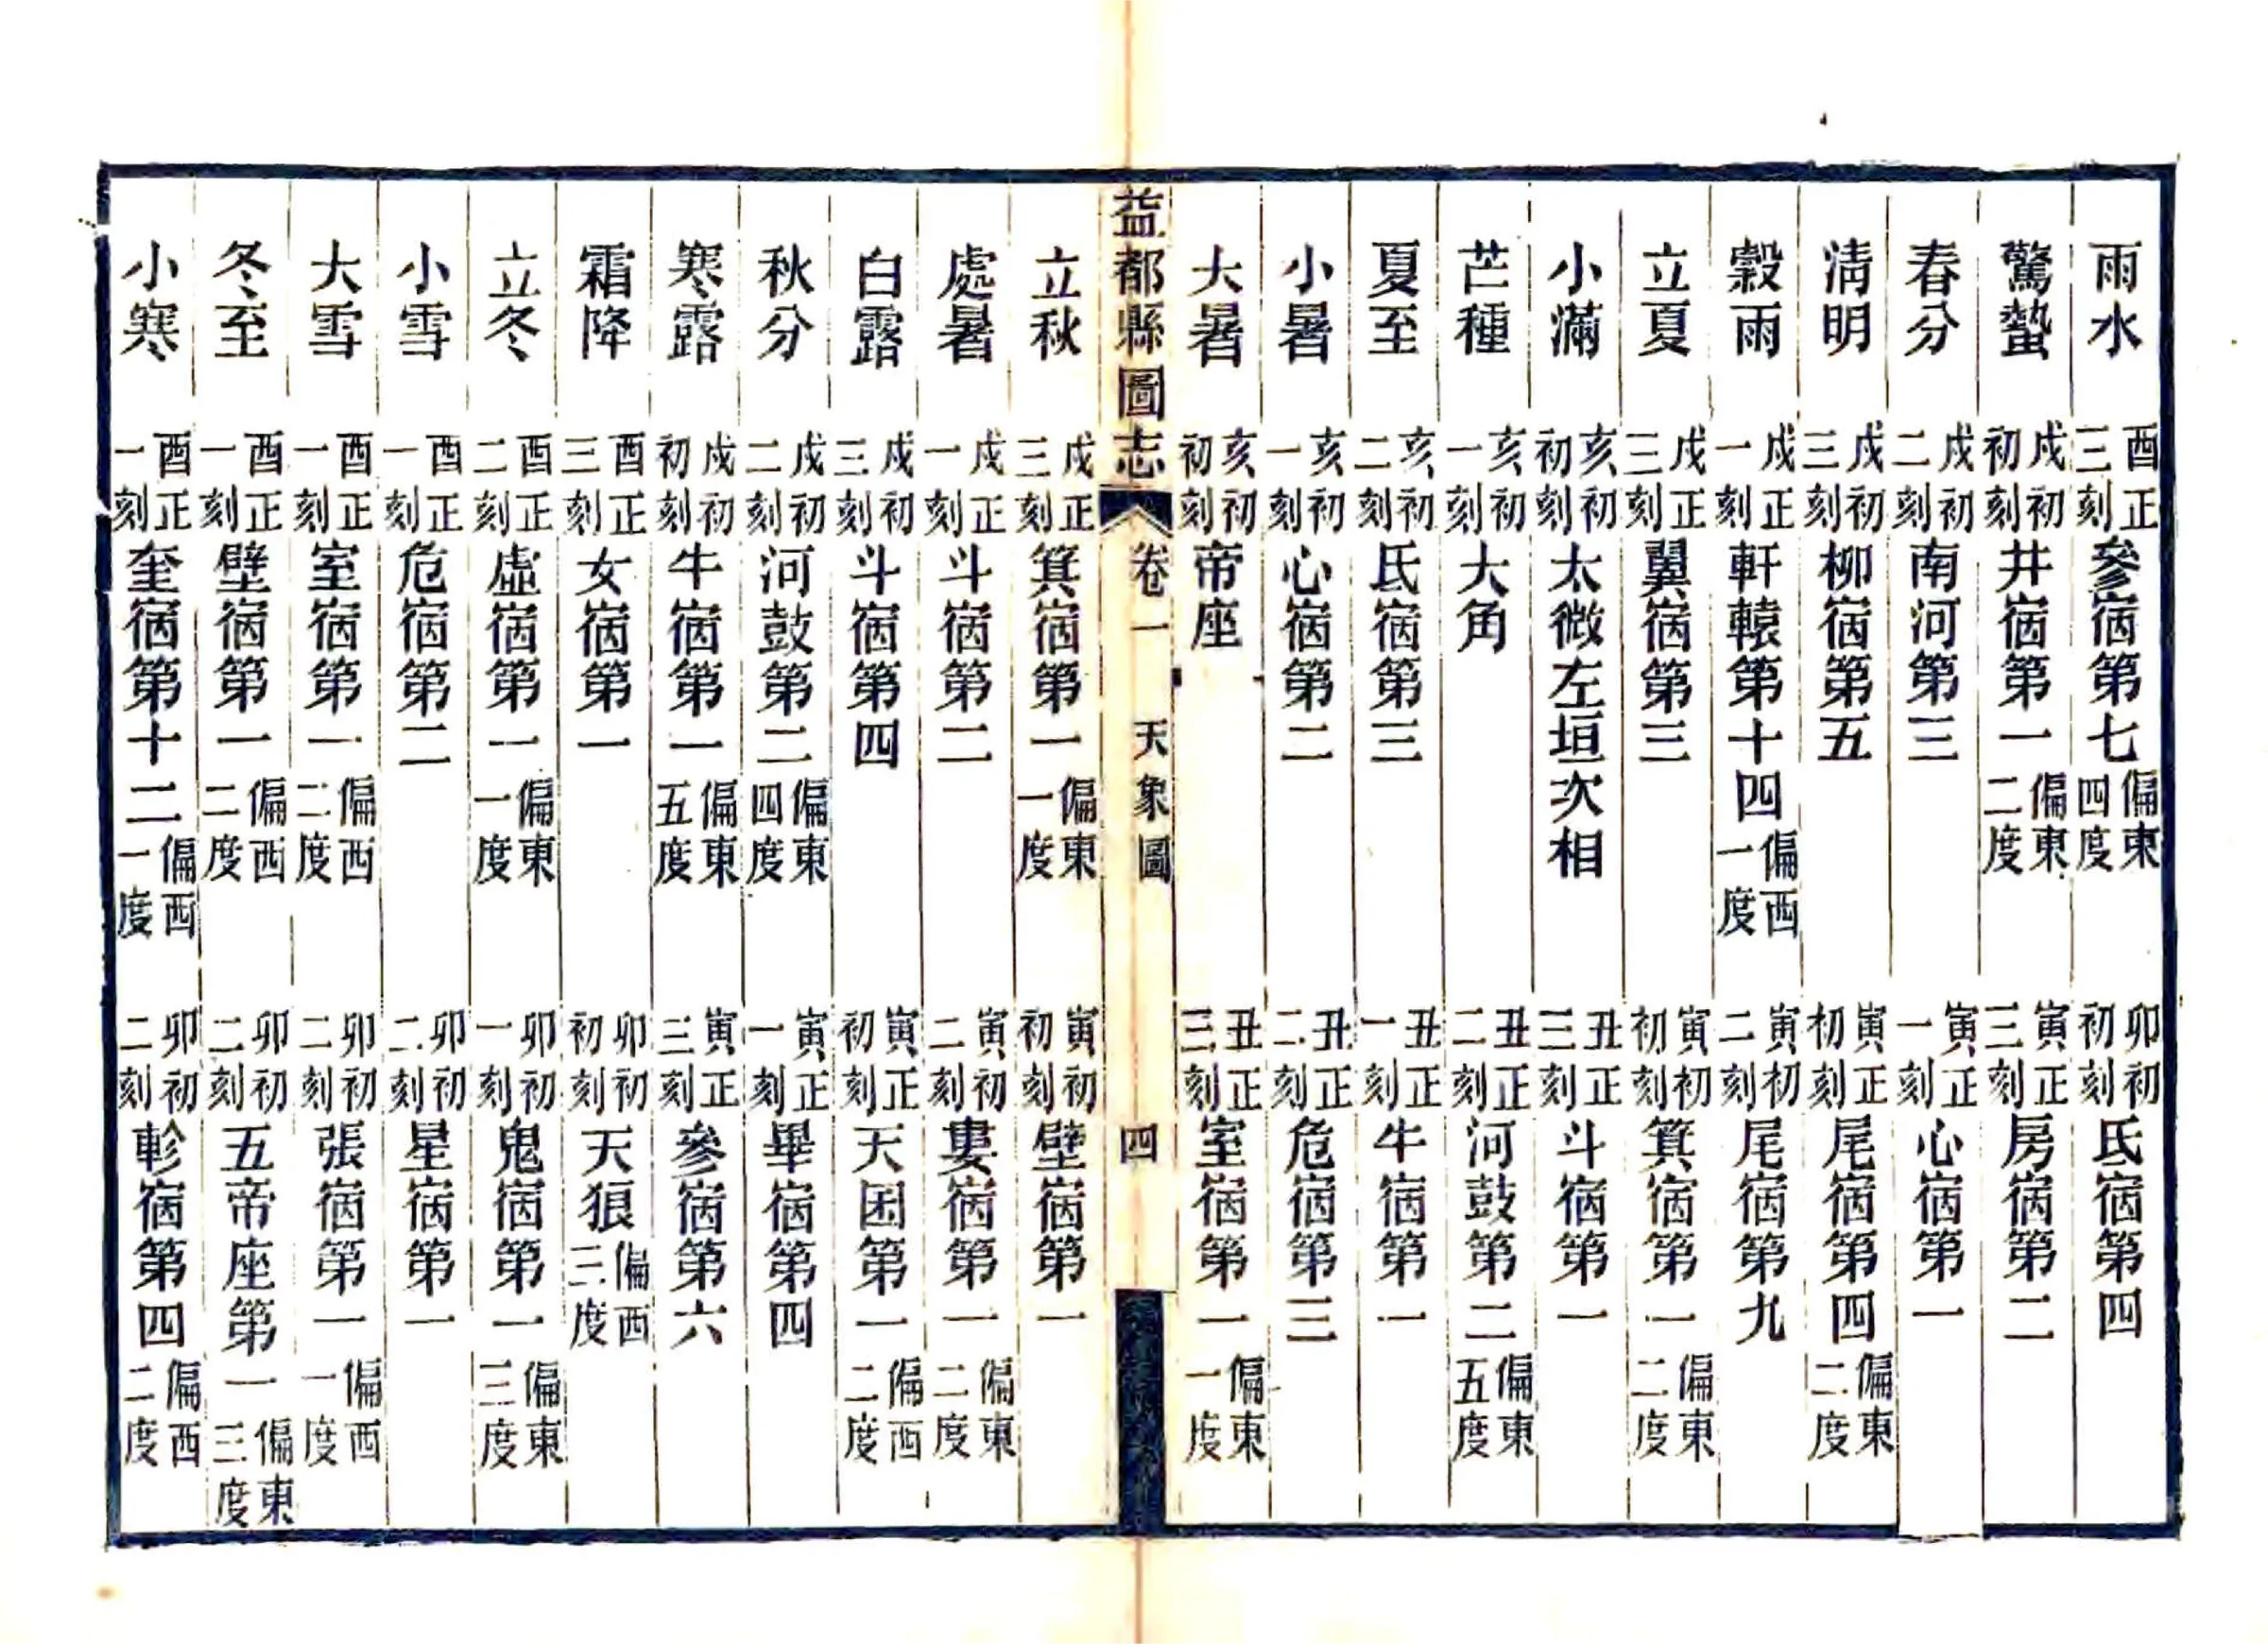 雨水 酉正三刻 參宿第七 偏東四度 卯初初刻 氐宿第四
驚蟄 戌初初刻 井宿第一 偏東二度 寅正三刻 房宿第二
春分 戌初二刻 南河第三 寅正一刻 心宿第一
淸明 戌初三刻 柳宿第五 寅正初刻 尾宿第四 偏東二度
穀雨 戌正一刻 軒轅第十四 偏西一度 寅初二刻 尾宿第九
立夏 戌正三刻 翼宿第三 寅初初刻 箕宿第一 偏東二度
小滿 亥初初刻 太微左垣次相 丑正三刻 斗宿第一
芒種 亥初一刻 大角 丑正二刻 河鼓第二 偏東五度
夏至 亥初二刻 氐宿第三 丑正一刻 牛宿第一
小暑 亥初一刻 心宿第二 丑正二刻 危宿第三
大暑 亥初初刻 帝座 丑正三刻 室宿第一 偏東一度
益都縣圖志 卷一 天象圖 四
立秋 戌正三刻 箕宿第一 偏東一度 寅初初刻 壁宿第一
處暑 戌正一刻 斗宿第二 寅初二刻 婁宿第一 偏東二度
白露 戌初三刻 斗宿第四 寅正初刻 天囷第一 偏西二度
秋分 戌初二刻 河鼓第二 偏東四度 寅正一刻 畢宿第四
寒露 戌初初刻 牛宿第一 偏東五度 寅正三刻 參宿第六
霜降 酉正三刻 女宿第一 卯初初刻 天狼 偏西三度
立冬 酉正二刻 虛宿第一 偏東一度 卯初一刻 鬼宿第一 偏東三度
小雪 酉正一刻 危宿第二 卯初二刻 星宿第一
大雪 酉正一刻 室宿第一 偏西二度 卯初二刻 張宿第一 偏西一度
冬至 酉正一刻 壁宿第一 偏西二度 卯初二刻 五帝座第一 偏東三度
小寒 酉正一刻 奎宿第十二 偏西一度 卯初二刻 軫宿第四 偏西二度